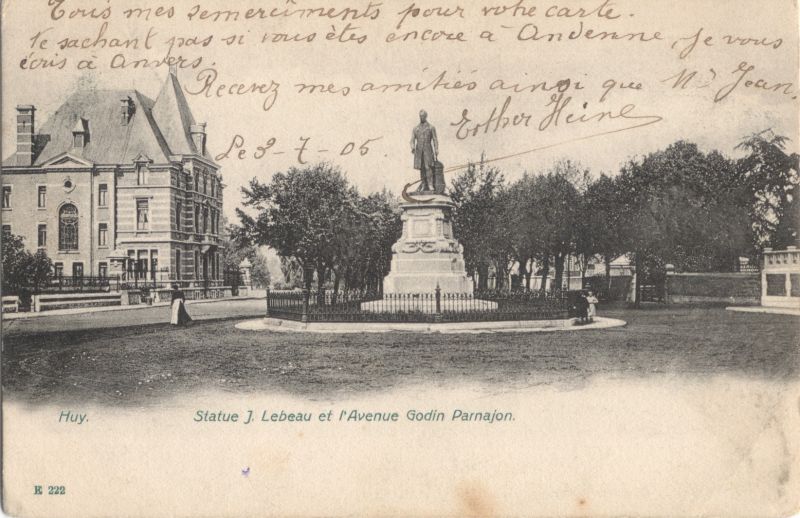 Tous mes remerciments pour votre carte.
Ne sachant pas si vous êtes encore à Andenne, je vous
écris à Anvers.
Recevez mes amitiés ainsi que Mr Jean,
Esther Heine
Le 3-7-05
Huy. Statue J. Lebeau et l'Avenue Godin Parnajon.
E 222